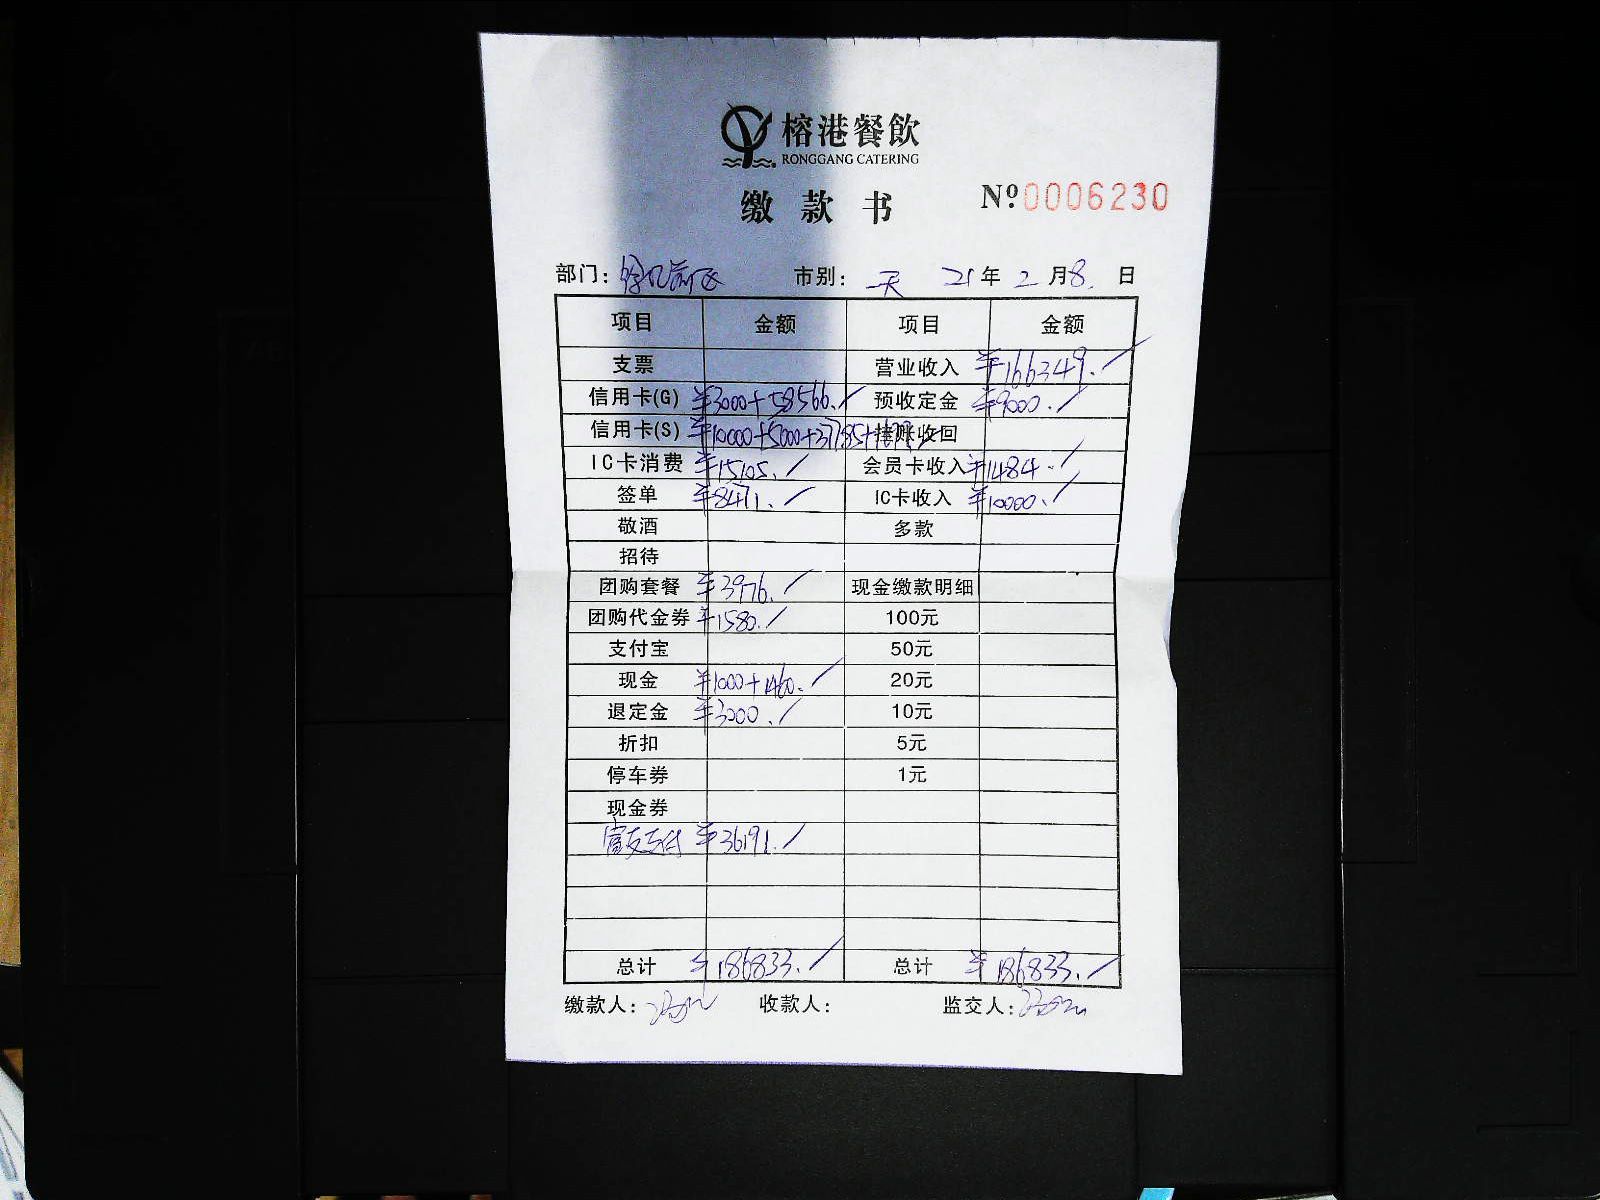 榕港餐飲
RONGGANG CATERING
缴款书 Nº0006230
部门: 市别: 天 21年 2月8日
项目 金额 项目 金额
支票 营业收入 ¥166349.
信用卡(G) ¥3000+58566. 预收定金 ¥9000.
信用卡(S) ¥10000+5000+37785+1699 挂账收回
IC卡消费 ¥15105. 会员卡收入 ¥1484.
签单 ¥8471. IC卡收入 ¥10000.
敬酒 多款
招待
团购套餐 ¥3976. 现金缴款明细
团购代金券 ¥1580. 100元
支付宝 50元
现金 ¥1000+1460. 20元
退定金 ¥3000. 10元
折扣 5元
停车券 1元
现金券
富友支付 ¥36191.
总计 ¥186833. 总计 ¥186833.
缴款人: 收款人: 监交人: